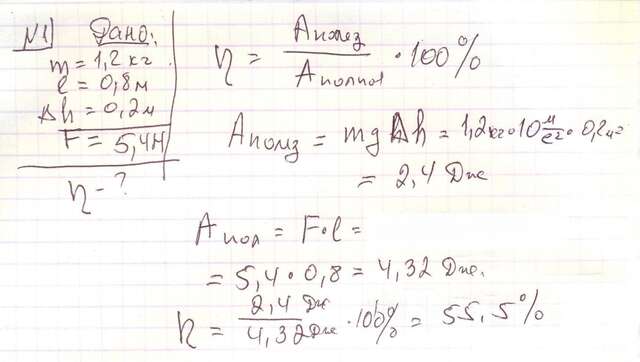 N1 Дано:
m = 1,2 кг
l = 0,8 м
Δh = 0,2 м
F = 5,4 Н
η - ?
η = Aполез / Aполная · 100%
Aполез = mgΔh = 1,2 кг · 10 Н/кг · 0,2 м =
= 2,4 Дж
Aпол = F·l =
= 5,4 · 0,8 = 4,32 Дж.
η = 2,4 Дж / 4,32 Дж · 100% = 55,5%